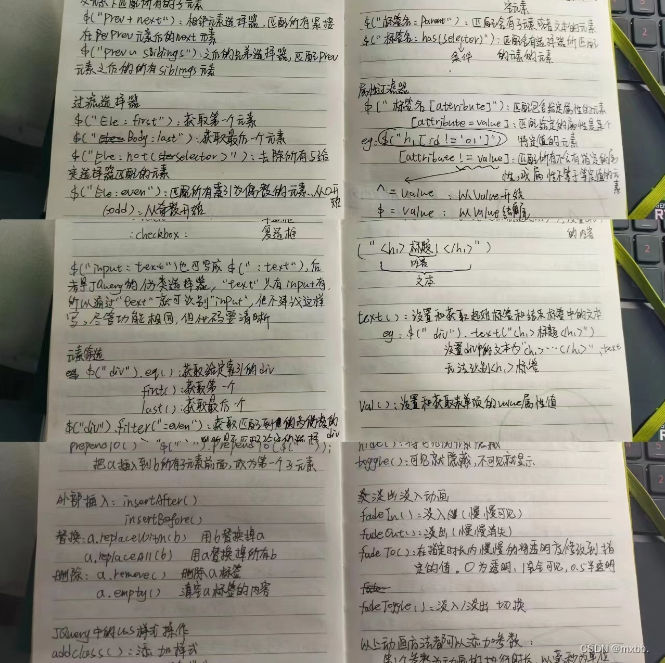 $("Prev + next"): 相邻元素选择器, 匹配所有紧接
在 Prev 元素后的 next 元素
$("prev ~ sibings"): 之后的兄弟选择器, 匹配 Prev
元素之后的所有 sibings 元素
过滤选择器
$("Ele : first"): 获取第一个元素
$("Body : last"): 获取最后一个元素
$("Ele : not(selector)"): 去除所有与给
定选择器匹配的元素
$("Ele : even"): 匹配所有索引为偶数的元素, 从0开
始
(odd): 从奇数开始
元素
$("标签名 : parent"): 匹配含有子元素或者文本的元素
$("标签名 : has(selector)"): 匹配含有选择器所匹配
条件 的元素的元素
属性过滤器
$("标签名[attribute]"): 匹配包含给定属性的元素
[attribute = value]: 匹配给定的属性是某个
eg: $("h1[id != '01']") 特定值的元素
[attribute != value]: 匹配所有不含有指定的属
性, 或属性不等于特定值的元
素
^ = value : 以 value 开始
$ = value : 以 value 结尾
:checkbox : 复选框
$("input : text") 也可写成 $(" : text"), 后
者是 JQuery 的伪类选择器, "text" 只有 input 有,
所以通过 "text" 就可识别 "input", 但不建议这样
写, 尽管功能相同, 但代码要清晰
元素筛选
$("div").eq(): 获取给定索引的 div
first(): 获取第一个
last(): 获取最后一个
$("div").filter(":even"): 获取匹配到索引值为偶数的
div
的内容
(" <h1> 标题 </h1> ")
内容
文本
text(): 设置和获取起始标签和结束标签中的文本
eg: $(" div").text("<h1>标题<h1>")
设置 div 中的文本为 "<h1>…</h1>", text
无法识别<h1>标签
val(): 设置和获取表单项的 value 属性值
prependTo()
把a插入到b所有子元素前面, 成为第一个子元素
外部插入: insertAfter()
insertBefore()
替换: a.replaceWith(b) 用b替换掉a
a.replaceAll(b) 用a替换掉所有b
删除: a.remove() 删除a标签
a.empty() 清空a标签的内容
JQuery 中的 css 样式操作
addclass(): 添加样式
toggle(): 可见就隐藏, 不可见就显示
淡出淡入动画
fadeIn(): 淡入(慢慢可见)
fadeOut(): 淡出(慢慢消失)
fadeTo(): 在指定时长内慢慢的将透明度修改到指
定的值。0为透明, 1完全可见, 0.5半透明
fadeToggle(): 淡入/淡出 切换
以上动画方法都可以添加参数:
第1个参数为动画的执行时长, 以毫秒为单位
CSDN @mx00.